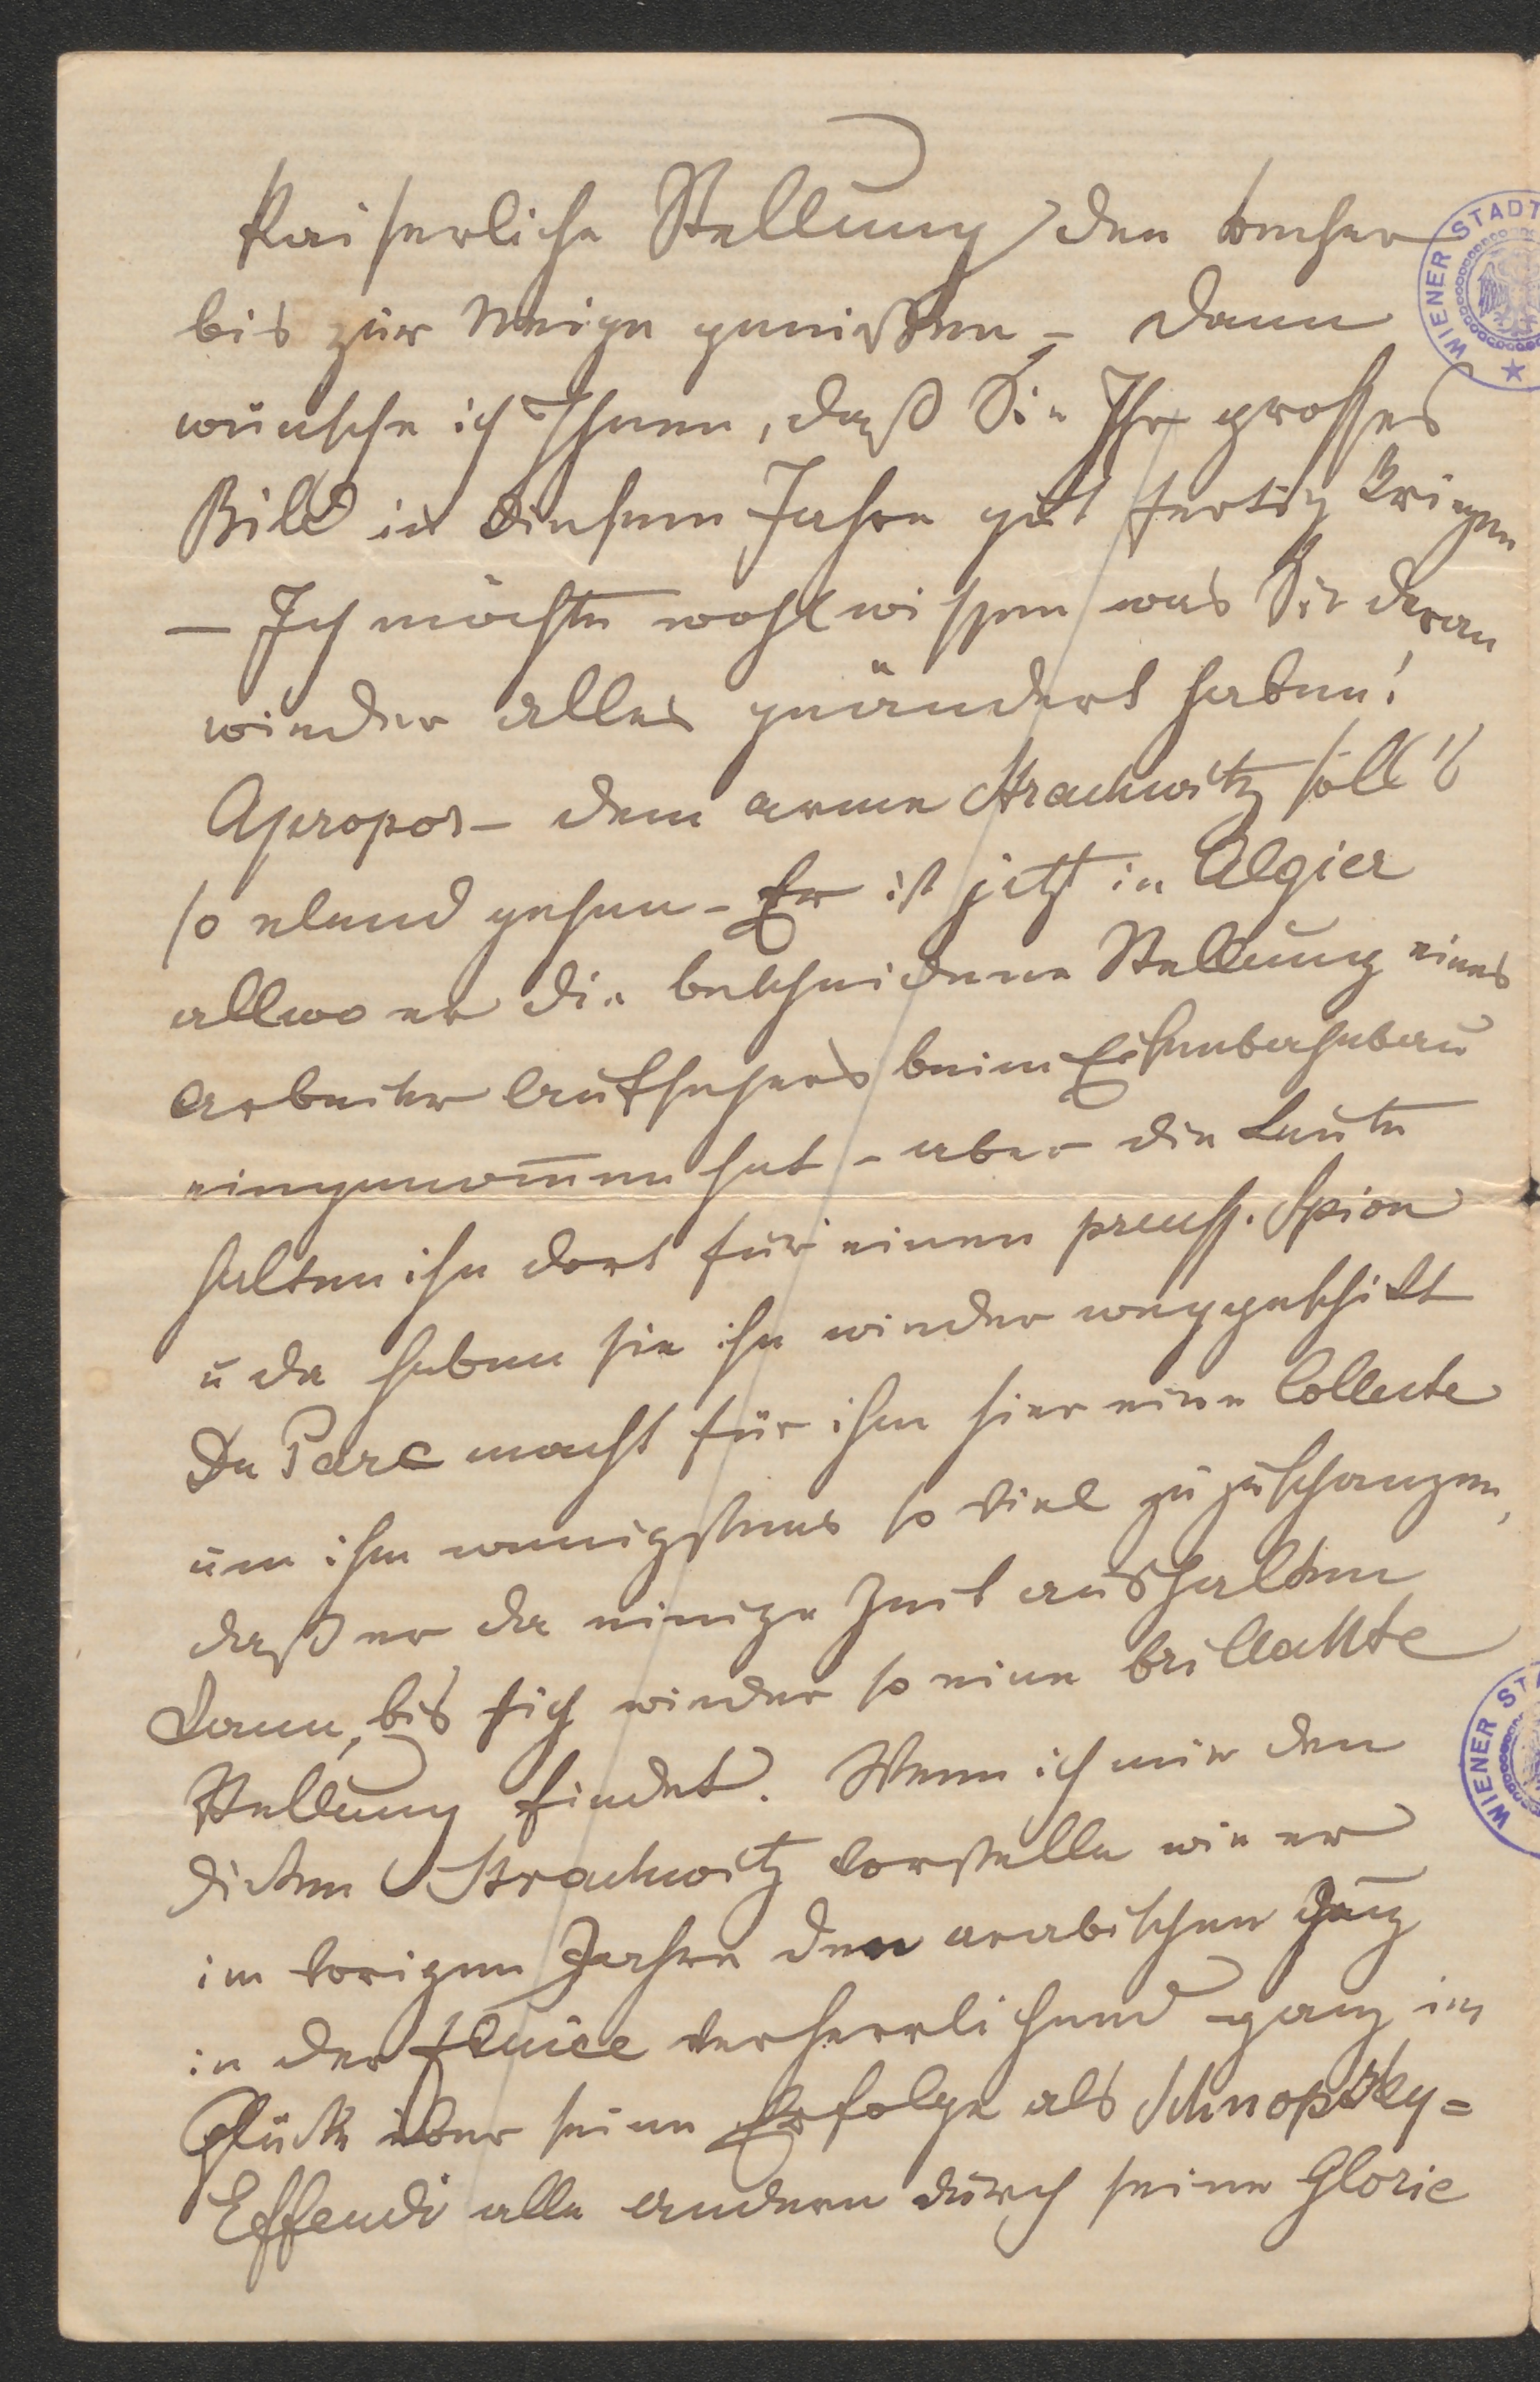 kaiserliche Stellung den Becher
bis zur Neige genießen – dann
wünsche ich Ihnen, daß Sie Ihr grosses
Bild in diesem Jahre gut fertig kriegen
– Ich möchte wohl wissen was Sie daran
wieder alles geändert haben!
Apropos – dem arme Strachwitz soll's
so elend gehen – Er ist jetzt in Algier
allwo er die bescheidene Stellung eines
Arbeiter Aufsehers beim Eisenbahnbau
eingenom̄en hat – aber die Leute
halten ihn dort für einen preuss. Spion
u da haben sie ihn wieder weggeschikt
Du Parc macht für ihn hier eine Collecte
um ihm wenigstens so viel zu zuschanzen,
daß er da einige Zeit aushalten
kann, bis sich wieder so eine brillante
Stellung findet. Wenn ich mir den
dicken Strachwitz vorstelle wie er
im vorigen Jahre den arabischen Zug
in der verherrlichend ganz im
Glücke über seine Erfolge als Schnopsky=
Effendi alle andern durch seine Glorie
WIENER STADT
WIENER STA